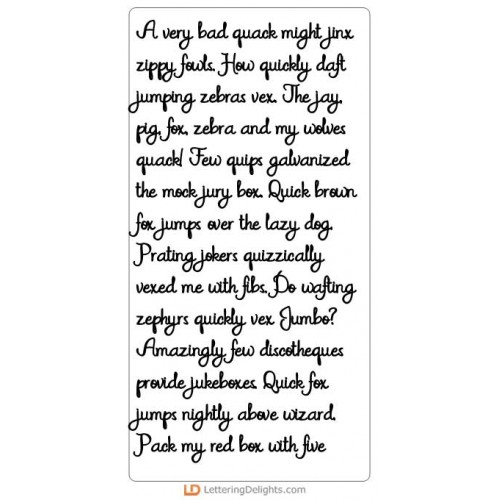 A very bad quack might jinx
zippy fowls. How quickly daft
jumping zebras vex. The jay,
pig, fox, zebra and my wolves
quack! Few quips galvanized
the mock jury box. Quick brown
fox jumps over the lazy dog.
Prating jokers quizzically
vexed me with fibs. Do wafting
zephyrs quickly vex Jumbo?
Amazingly few discotheques
provide jukeboxes. Quick fox
jumps nightly above wizard.
Pack my red box with five
LD LetteringDelights.com